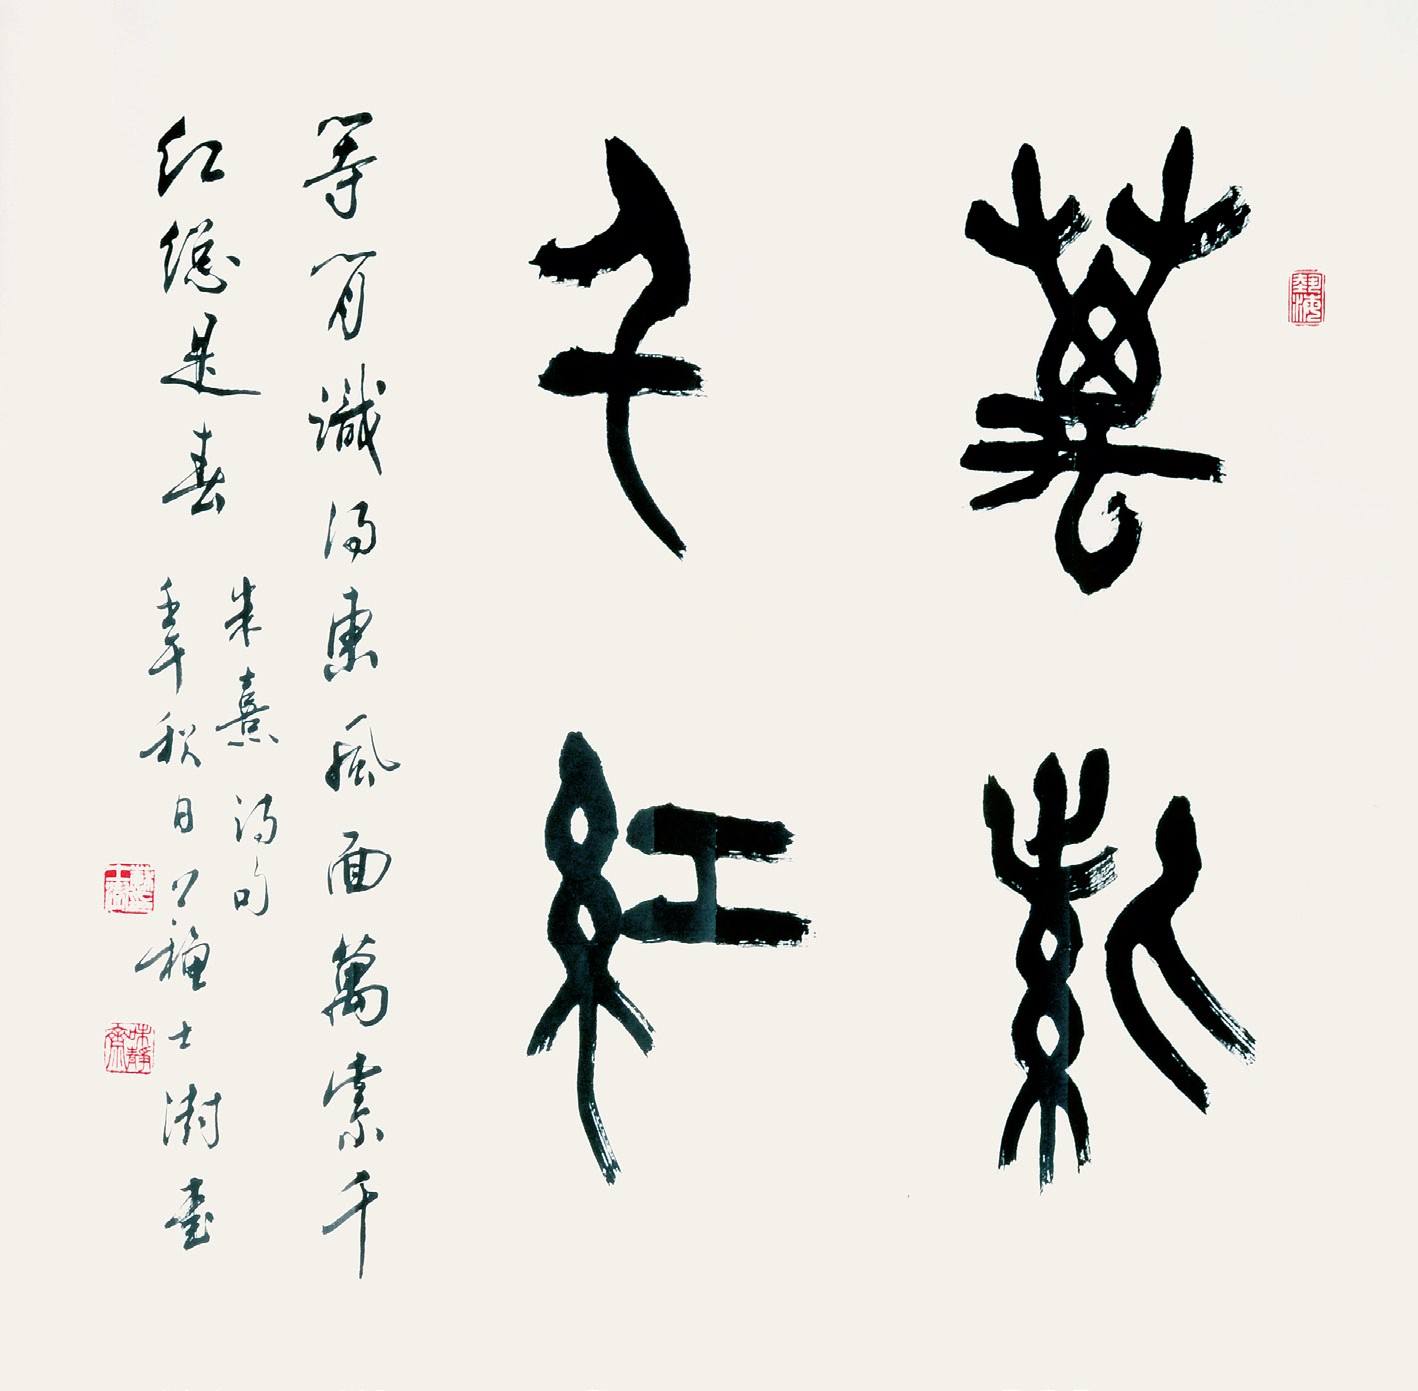 萬紫
千紅
等閒識得東風面萬紫千
紅總是春
朱熹詩句
壬午秋日
士澍書